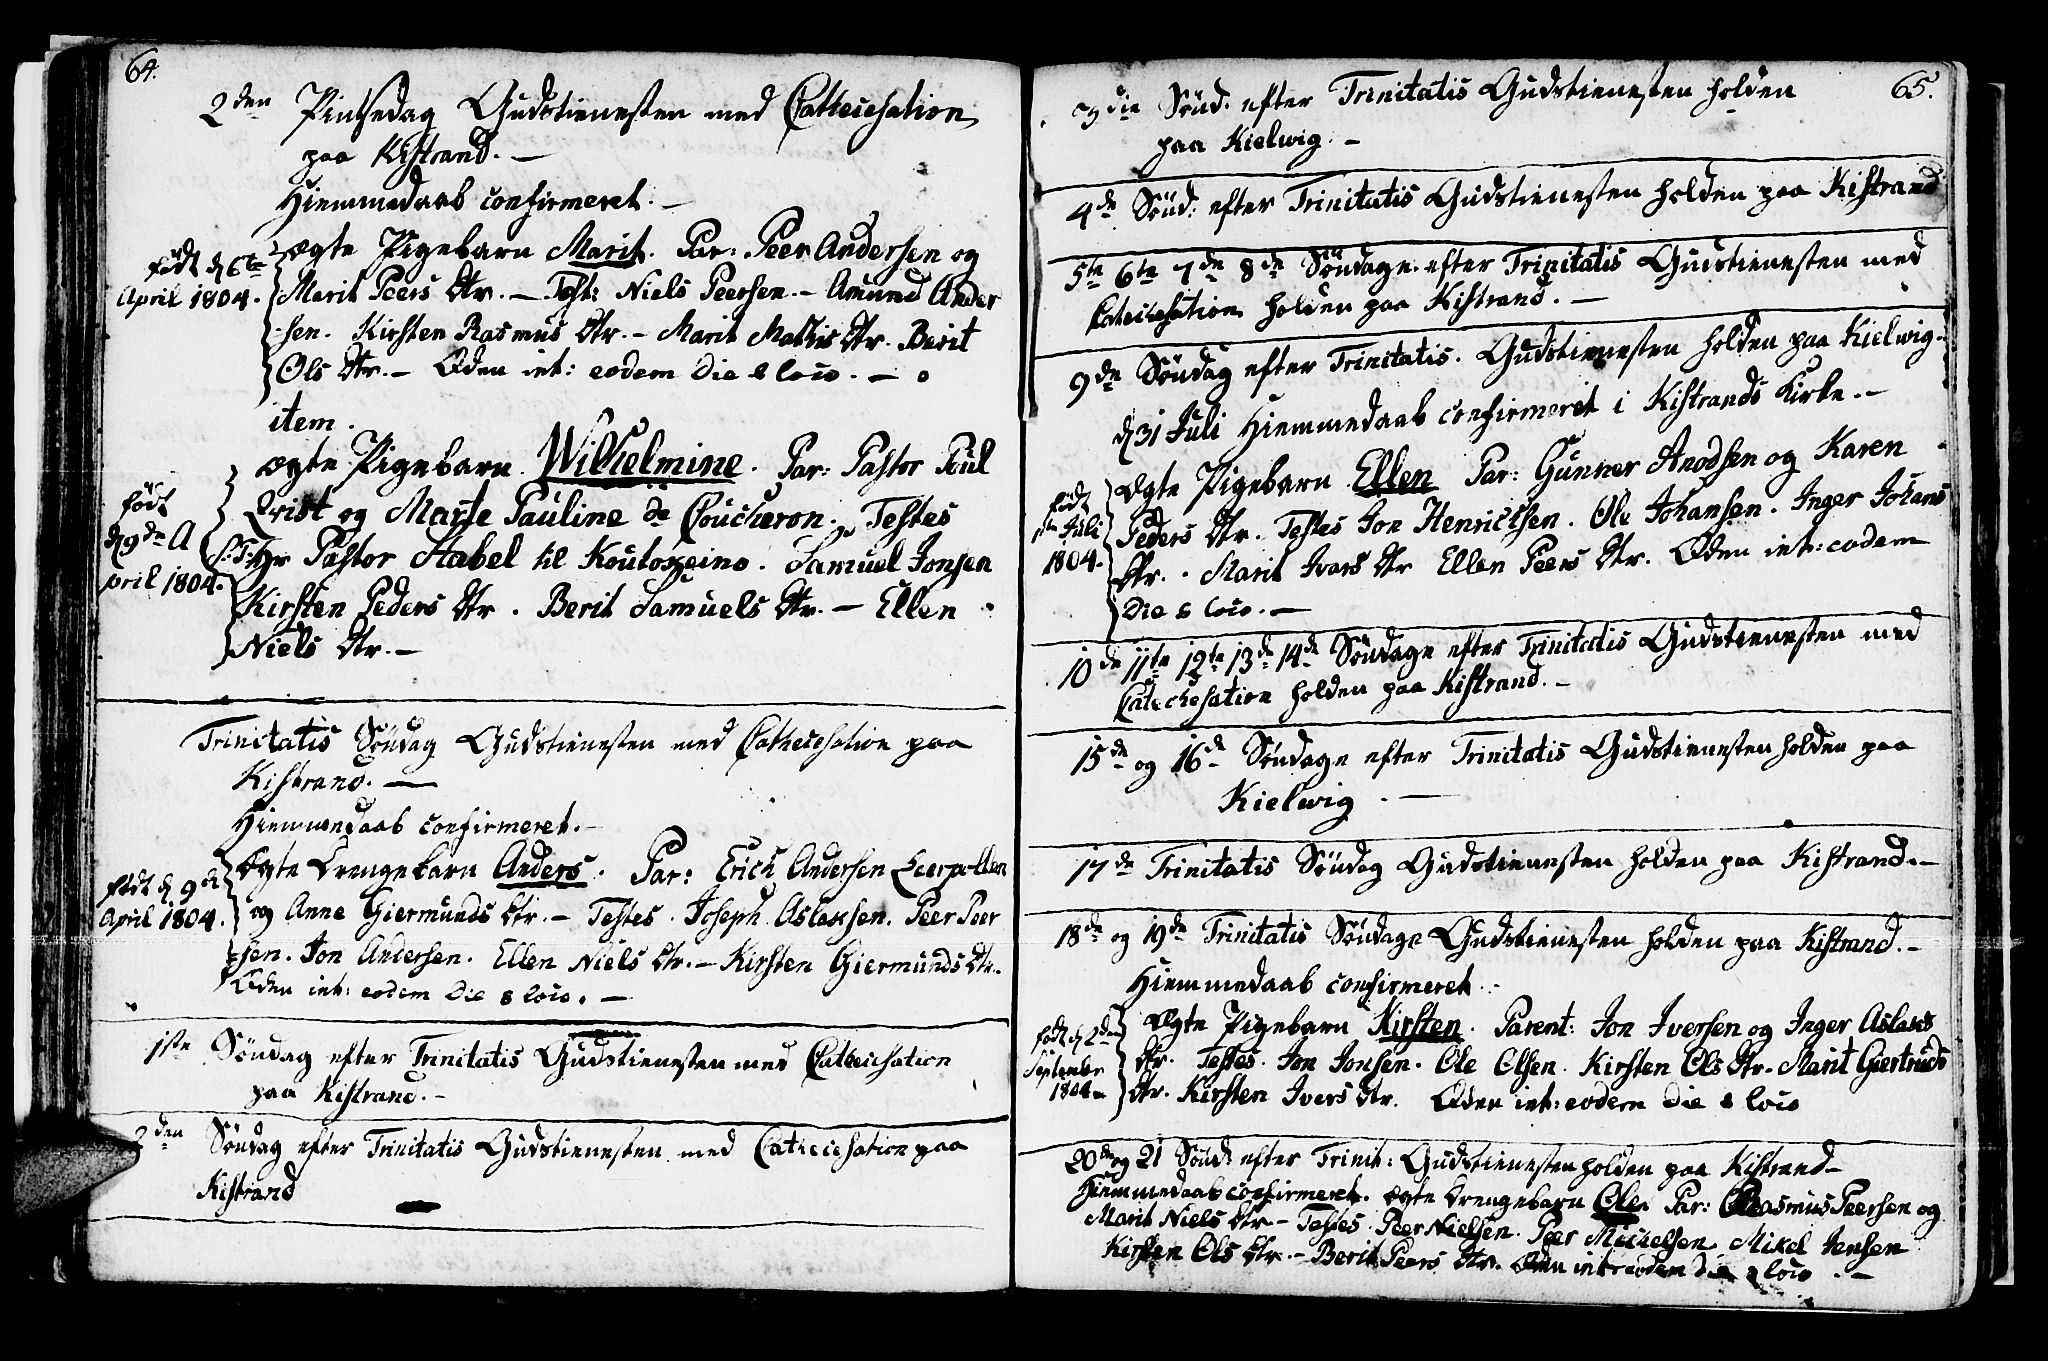 64.
2den Pintsedag Gudstienesten med Cathecesation
paa Kistrand. —
Hiemmedaab confirmeret. —
født d 6te
April 1804.
ægte Pigebarn Marit. Par: Peer Andersen og
Marit Peers Dtr. — Test: Niels Peersen. — Amund Ander
-sen. Kirsten Rasmus Dtr. — Marit Mathis Dtr. Berit
Ols Dtr. — Øden int: eodem Die & loco. —
item.
født
d 9de A
pril 1804.
ægte Pigebarn Wilhelmine. Par: Pastor Paul
Qrist og Marte Pauline de Coucheron. Testes
S:T: Hr Pastor Stabel til Koutokeino. Samuel Jonsen
Kirsten Peders Dtr. Berit Samuels Dtr. — Ellen
Niels Dtr. —
Trinitatis Søndag Gudstienesten med Cathecesation paa
Kistrand. —
Hiemmedaab confirmeret. —
født d 9de
April 1804.
Ægte Drengebarn Anders. Par: Erich Andersen Leerpollen
og Anne Giermunds Dtr. — Testes. Joseph Aslaksen. Peer Peer
-sen. Jon Andersen. Ellen Niels Dtr. — Kirsten Giermunds Dtr.
Øden int: eodem Die & loco. —
1ste Søndag efter Trinitatis Gudstienesten med Cathecesation
paa Kistrand. —
2den Søndag efter Trinitatis Gudstienesten med Cathecesation paa
Kistrand
65.
3die Sønd: efter Trinitatis Gudstienesten holden
paa Kielwig. —
4de Sønd: efter Trinitatis Gudstienesten holden paa Kistrand
5te 6te 7de 8de Søndage efter Trinitatis Gudstienesten med
Catechesation holden paa Kistrand. —
9de Søndag efter Trinitatis. Gudstienesten holden paa Kielwig. —
d 31 Juli Hiemmedaab confirmeret i Kistrands Kirke. —
født
Juli
1804.
Ægte Pigebarn Ellen Par: Gunner Anodsen og Karen
Peders Dtr. Testes Jon Henricksen. Ole Johansen. Inger Johans
Dtr. Marit Ivars Dtr Ellen Peers Dtr. Øden int: eodem
Die & loco. —
10de 11te 12te 13de 14de Søndage efter Trinitatis Gudstienesten med
Catechesation holden paa Kistrand. —
15de og 16de Søndage efter Trinitatis Gudstienesten holden paa
Kielwig. —
17de Trinitatis Søndag Gudstienesten holden paa Kistrand. —
18de og 19de Trinitatis Søndage Gudstienesten holden paa Kistrand. —
Hiemmedaab confirmeret.
født d 2den
September
1804
Ægte Pigebarn Kirsten. Parent: Jon Iversen og Inger Aslaks
Dtr. Testes. Jon Jonsen. Ole Olsen. Kirsten Ols Dtr. Marit Giertruds
Dtr. Kirsten Ivers Dtr. Øden int: eodem Die & loco
20de og 21 Sønd: efter Trinit: Gudstienesten holden paa Kistrand —
Hiemmedaab confirmeret. Ægte Drengebarn Ole. Par: Rasmus Peersen og
Marit Niels Dtr. — Testes. Peer Nielsen. Peer Michelsen. Mikel Jensen
Kirsten Ols Dtr. — Berit Peers Dtr. Øden int: eodem die & loco. —